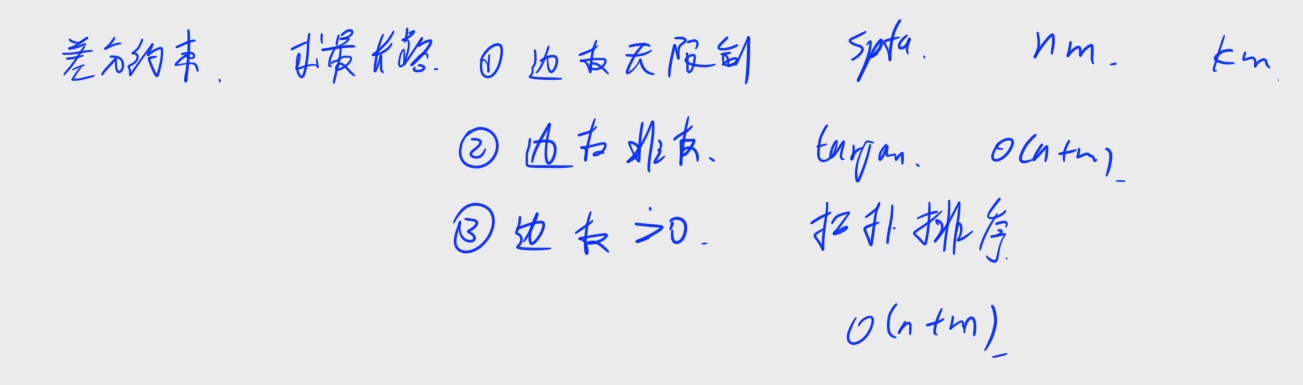 差分约束. 求最长路. ① 边权无限制 spfa. nm. km.
② 边权非负. tarjan. O(n+m)
③ 边权 >0. 拓扑排序
O(n+m)